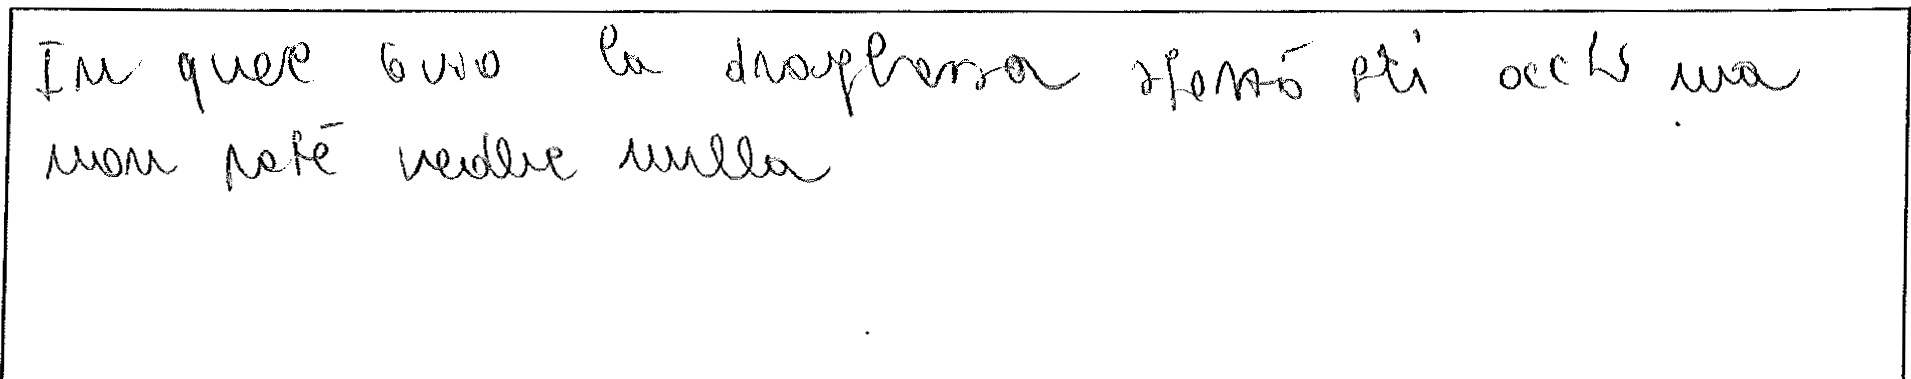 In quel buio la draghessa spessò gli occhi ma
non potē vedere nulla